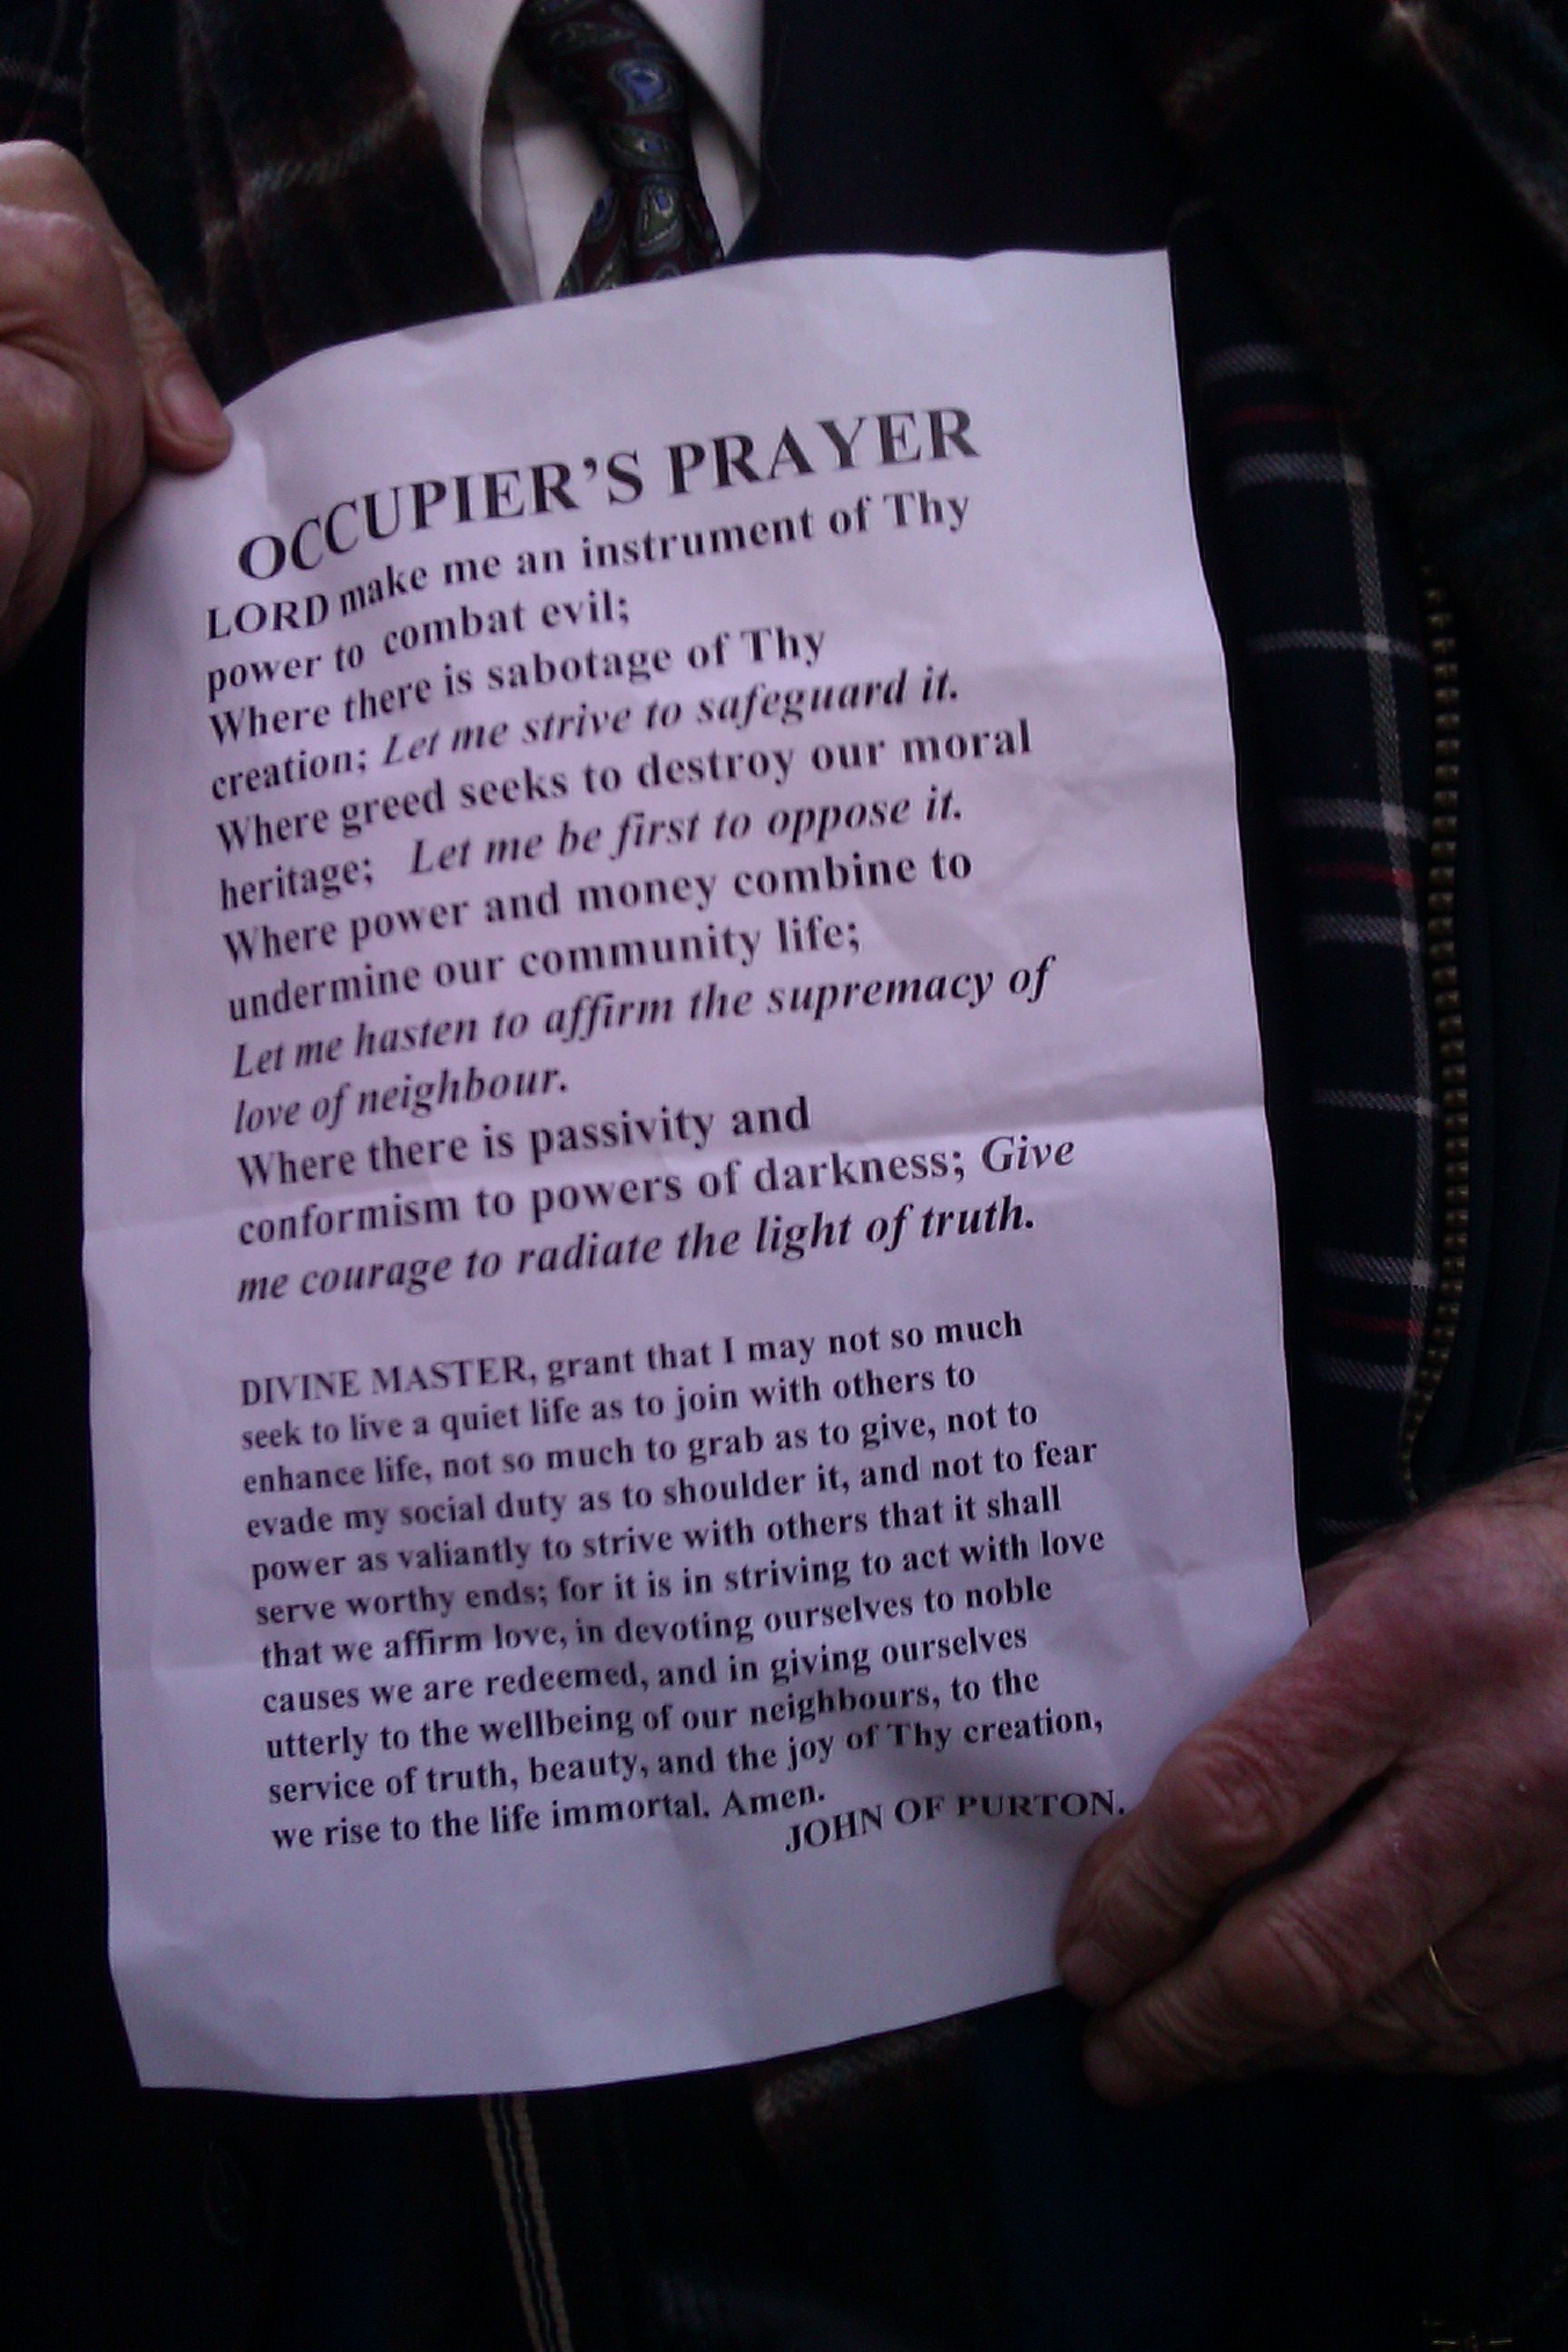 OCCUPIER'S PRAYER
LORD make me an instrument of Thy
power to combat evil;
Where there is sabotage of Thy
creation; Let me strive to safeguard it.
Where greed seeks to destroy our moral
heritage; Let me be first to oppose it.
Where power and money combine to
undermine our community life;
Let me hasten to affirm the supremacy of
love of neighbour.
Where there is passivity and
conformism to powers of darkness; Give
me courage to radiate the light of truth.
DIVINE MASTER, grant that I may not so much
seek to live a quiet life as to join with others to
enhance life, not so much to grab as to give, not to
evade my social duty as to shoulder it, and not to fear
power as valiantly to strive with others that it shall
serve worthy ends; for it is in striving to act with love
that we affirm love, in devoting ourselves to noble
causes we are redeemed, and in giving ourselves
utterly to the wellbeing of our neighbours, to the
service of truth, beauty, and the joy of Thy creation,
we rise to the life immortal. Amen.
JOHN OF PURTON.